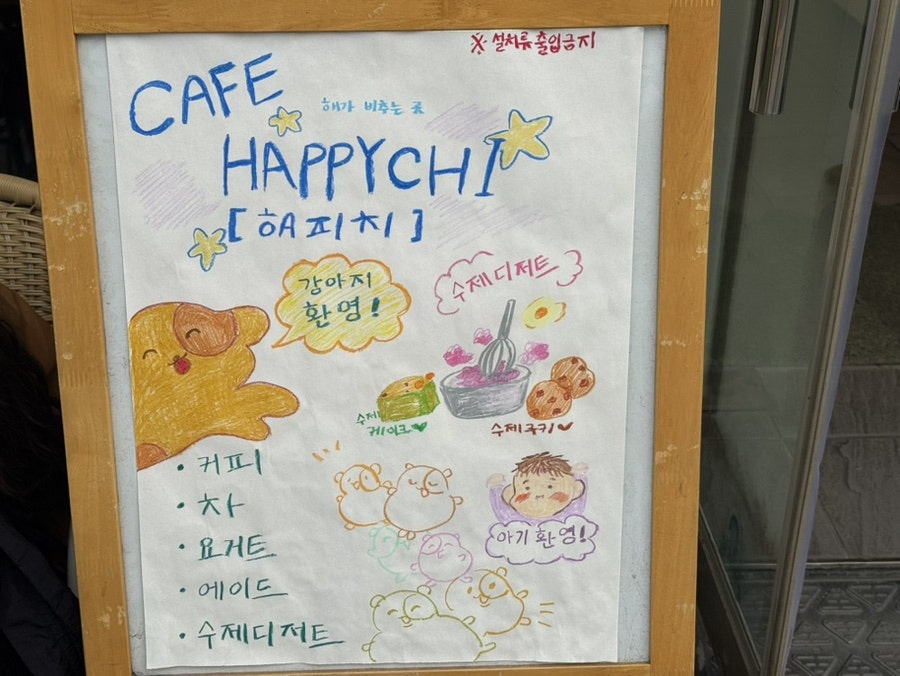 ※ 설치류 출입금지
CAFE
해가 비추는 곳
HAPPYCHI
[해피치]
강아지
환영!
수제디저트
수제
케이크
수제쿠키
• 커피
• 차
• 요거트
• 에이드
• 수제디저트
아기환영!